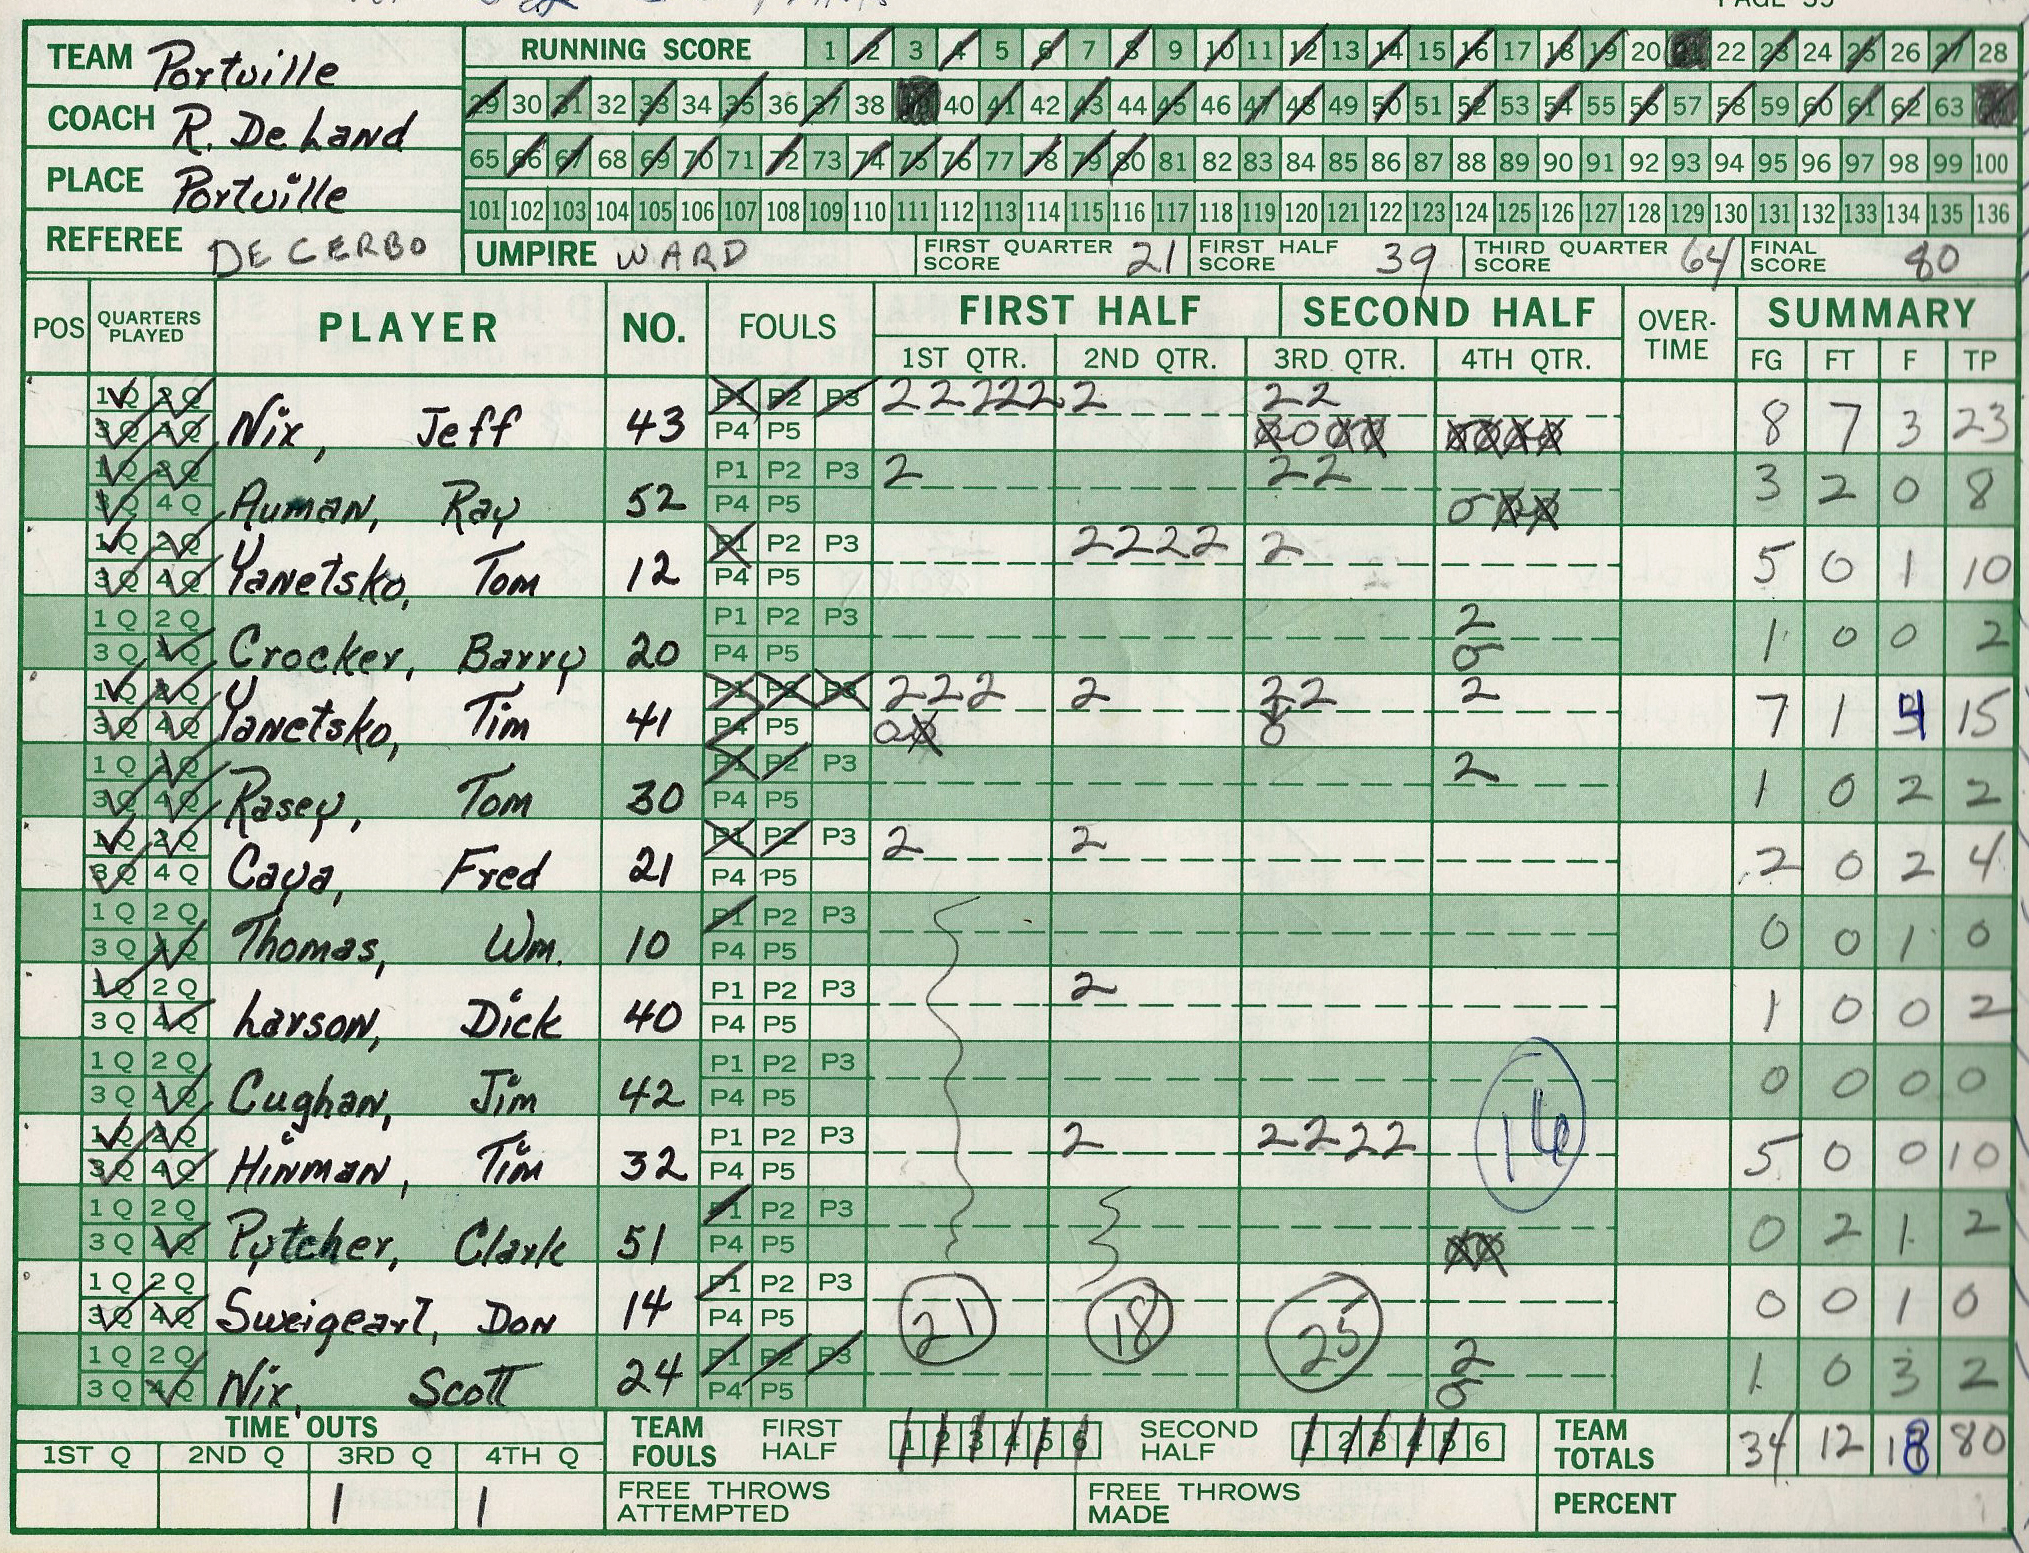 PAGE 39
TEAM Portville
COACH R. DeLand
PLACE Portville
REFEREE DE CERBO
RUNNING SCORE 1 2 3 4 5 6 7 8 9 10 11 12 13 14 15 16 17 18 19 20 21 22 23 24 25 26 27 28
29 30 31 32 33 34 35 36 37 38 39 40 41 42 43 44 45 46 47 48 49 50 51 52 53 54 55 56 57 58 59 60 61 62 63 64
65 66 67 68 69 70 71 72 73 74 75 76 77 78 79 80 81 82 83 84 85 86 87 88 89 90 91 92 93 94 95 96 97 98 99 100
101 102 103 104 105 106 107 108 109 110 111 112 113 114 115 116 117 118 119 120 121 122 123 124 125 126 127 128 129 130 131 132 133 134 135 136
UMPIRE WARD FIRST QUARTER SCORE 21 FIRST HALF SCORE 39 THIRD QUARTER SCORE 64 FINAL SCORE 80
POS QUARTERS PLAYED PLAYER NO. FOULS FIRST HALF SECOND HALF OVER-TIME SUMMARY
1ST QTR. 2ND QTR. 3RD QTR. 4TH QTR. FG FT F TP
1Q 2Q P1 P2 P3 2 2 2 2 2 2 2 2
3Q 4Q Nix, Jeff 43 P4 P5 8 7 3 23
1Q 2Q P1 P2 P3 2 2 2
3Q 4Q Auman, Ray 52 P4 P5 3 2 0 8
1Q 2Q P1 P2 P3 2 2 2 2 2
3Q 4Q Yanetsko, Tom 12 P4 P5 5 0 1 10
1Q 2Q P1 P2 P3 2
3Q 4Q Crocker, Barry 20 P4 P5 0 1 0 0 2
1Q 2Q P1 P2 P3 2 2 2 2 2 2 2
3Q 4Q Yanetsko, Tim 41 P4 P5 7 1 4 15
1Q 2Q P1 P2 P3 2
3Q 4Q Rasey, Tom 30 P4 P5 1 0 2 2
1Q 2Q P1 P2 P3 2 2
3Q 4Q Caya, Fred 21 P4 P5 2 0 2 4
1Q 2Q P1 P2 P3
3Q 4Q Thomas, Wm. 10 P4 P5 0 0 1 0
1Q 2Q P1 P2 P3 2
3Q 4Q Larson, Dick 40 P4 P5 1 0 0 2
1Q 2Q P1 P2 P3
3Q 4Q Cughan, Jim 42 P4 P5 0 0 0 0
1Q 2Q P1 P2 P3 2 2 2 2 2 16
3Q 4Q Hinman, Tim 32 P4 P5 5 0 0 10
1Q 2Q P1 P2 P3
3Q 4Q Pytcher, Clark 51 P4 P5 0 2 1 2
1Q 2Q P1 P2 P3
3Q 4Q Sweigeart, Don 14 P4 P5 21 18 25 0 0 1 0
1Q 2Q P1 P2 P3 2
3Q 4Q Nix, Scott 24 P4 P5 0 1 0 3 2
TIME OUTS TEAM FOULS FIRST HALF 1 2 3 4 5 6 SECOND HALF 1 2 3 4 5 6 TEAM TOTALS 34 12 18 80
1ST Q 2ND Q 3RD Q 4TH Q
1 1 FREE THROWS ATTEMPTED FREE THROWS MADE PERCENT